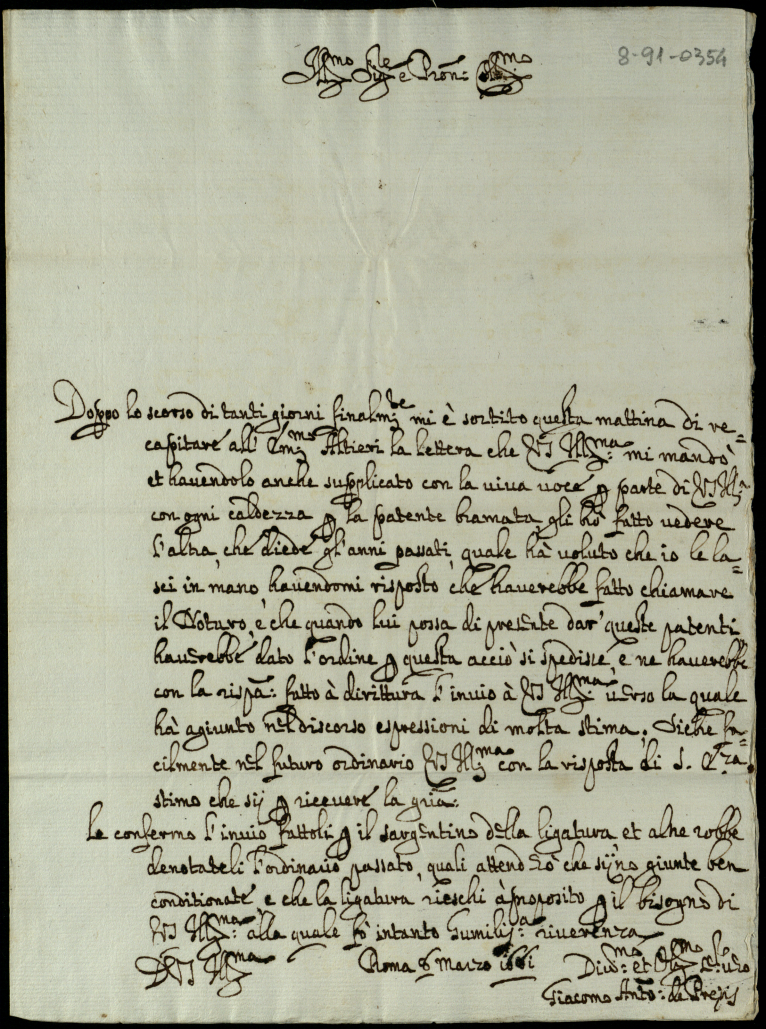 8-91-0354
Ill.mo Sig.re e Pron: Col.mo
Doppo lo scorso di tanti giorni finalm.te mi è sortito questa mattina di re=
capitare all' Em.mo Altieri la lettera che VS Ill.ma: mi mandò
et havendolo anche supplicato con la viva voce p parte di VS Ill.ma
con ogni caldezza p la patente bramata, gli hò fatto vedere
l'altra, che diede gl'anni passati, quale hà voluto che io le la=
sci in mano, havendomi risposto che haverebbe fatto chiamare
il Notaro, e che quando lui possa di presente dar' queste patenti
haverebbe dato l'ordine p questa acciò si spedisse, e ne haverebbe
con la rispa: fatto à dirittura l'invio à VS Ill.ma: verso la quale
hà agiunto nel discorso espressioni di molta stima. Siche fa=
cilmente nel futuro ordinario VS Ill.ma con la risposta di S. Em.za
stimo che sij p ricevere la gria:
Le confermo l'invio fattoli p il sargentino della ligatura et alne robbe
denotateli l'ordinario passato, quali attenderò che sijno giunte ben
conditionate, e che la ligatura rieschi à proposito p il bisogno di
VS Ill.ma: alla quale fò intanto humiliss.a riverenza
D VS Ill.ma Roma 6 Marzo Div.mo: et Obl.mo Se.re vero
Giacomo Anto: de Prepis